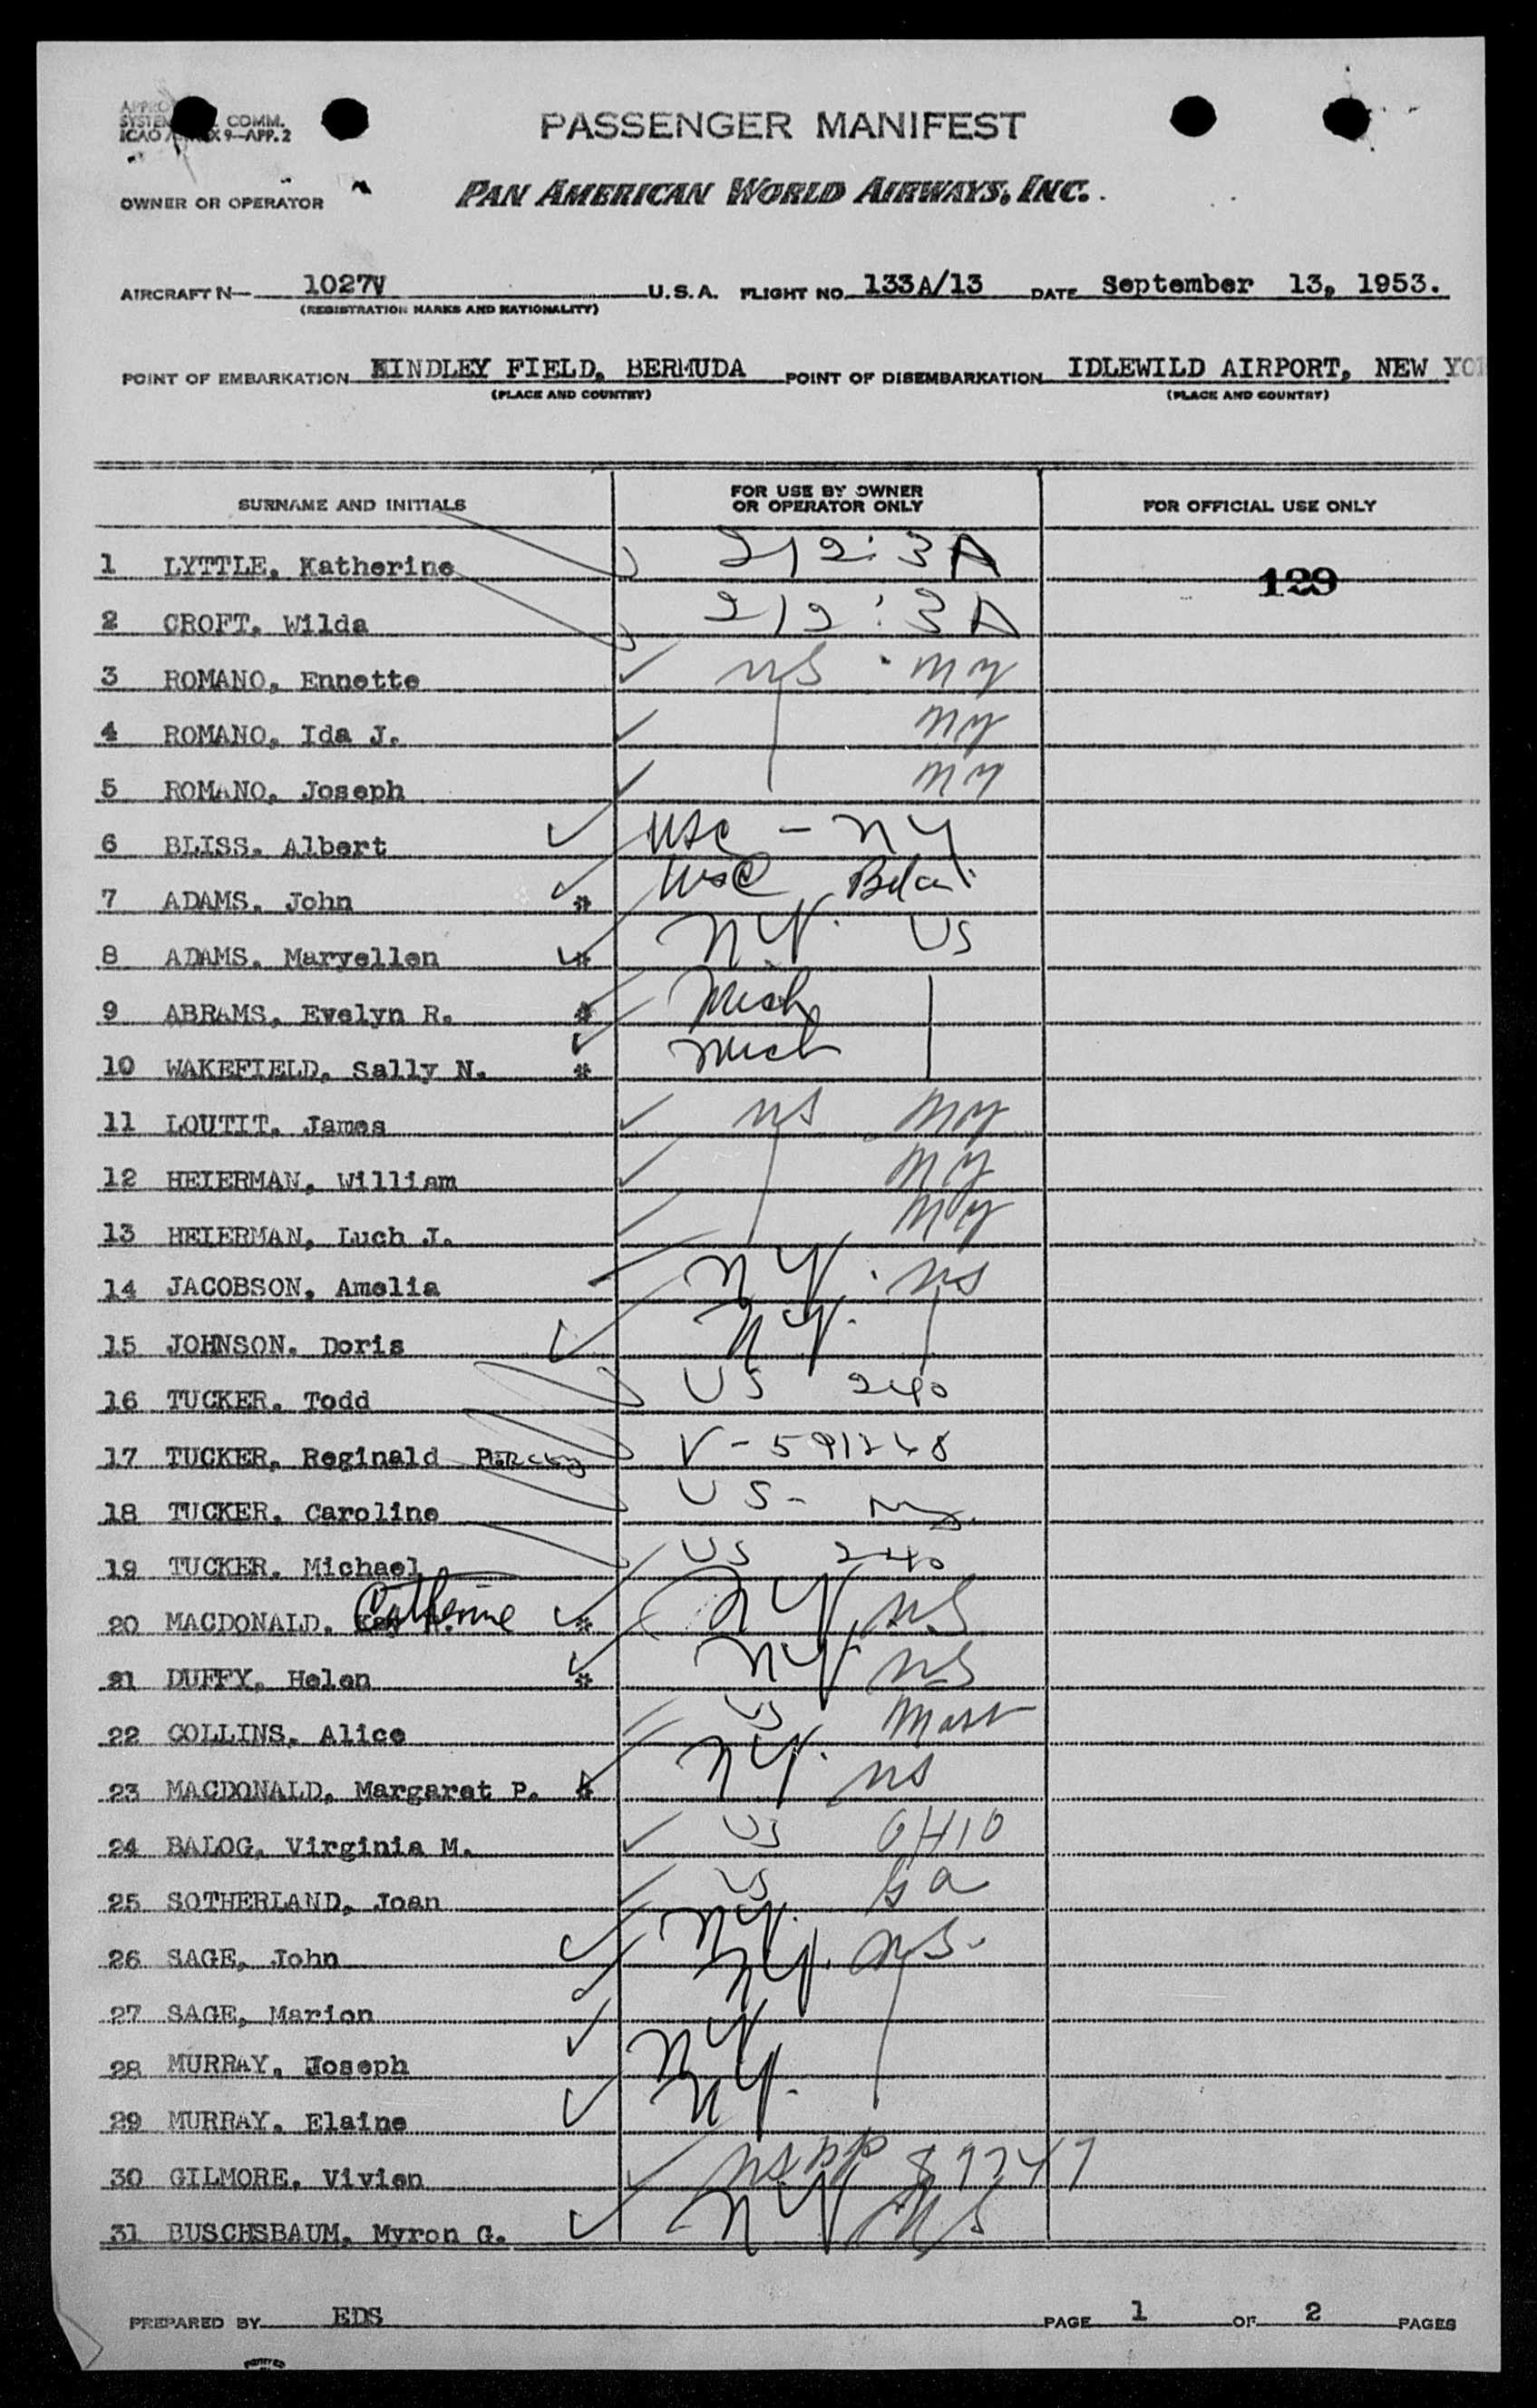 PASSENGER MANIFEST
COMM.
ICAO 9-APP. 2
OWNER OR OPERATOR PAN AMERICAN WORLD AIRWAYS, INC.
AIRCRAFT N— 1027V U.S.A. FLIGHT NO. 133A/13 DATE September 13, 1953.
(REGISTRATION MARKS AND NATIONALITY)
POINT OF EMBARKATION KINDLEY FIELD, BERMUDA POINT OF DISEMBARKATION IDLEWILD AIRPORT, NEW YOR
(PLACE AND COUNTRY) (PLACE AND COUNTRY)
SURNAME AND INITIALS FOR USE BY OWNER OR OPERATOR ONLY FOR OFFICIAL USE ONLY
1 LYTTLE, Katherine 212:3A 129
2 CROFT, Wilda 212:3A
3 ROMANO, Ennette US NY
4 ROMANO, Ida J. NY
5 ROMANO, Joseph NY
6 BLISS, Albert USC - NY
7 ADAMS, John * USC
8 ADAMS, Maryellen * N.Y. US
9 ABRAMS, Evelyn R. * Mich
10 WAKEFIELD, Sally N. * Mich
11 LOUTIT, James US NY
12 HEIERMAN, William NY
13 HEIERMAN, Luch J. NY
14 JACOBSON, Amelia N.Y. US
15 JOHNSON, Doris N.Y.
16 TUCKER, Todd US 240
17 TUCKER, Reginald V-591268
18 TUCKER, Caroline US- NY
19 TUCKER, Michael US 240
20 MACDONALD, Catherine * NY US
21 DUFFY, Helen * NY US
22 COLLINS, Alice US Mass
23 MACDONALD, Margaret P. * N.Y. US
24 BALOG, Virginia M. US OHIO
25 SOTHERLAND, Joan US Ga
26 SAGE, John N.Y. US.
27 SAGE, Marion N.Y.
28 MURRAY, Joseph NY
29 MURRAY, Elaine N.Y.
30 GILMORE, Vivien US PP 87747
31 BUSCHSBAUM, Myron G. NY US
PREPARED BY EDS PAGE 1 OF 2 PAGES